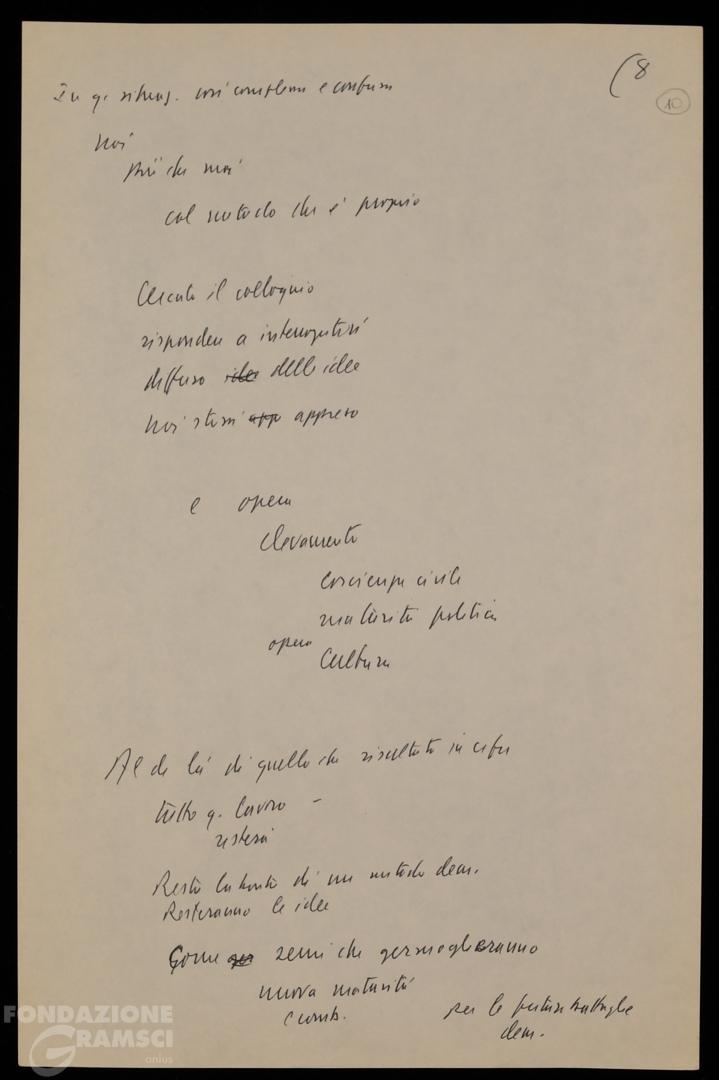 (8
10
In q. situaz. così complessa e confusa
noi
più che mai
col metodo che è proprio
Cercato il colloquio
risposto a interrogativi
diffuso idee delle idee
noi stessi app appreso
e opera
elevamento
coscienza civile
maturità politica
opera
Cultura
Al di là di quello che risultato in cifre
tutto q. lavoro –
resterà
Resterà la bontà di un metodo dem.
Resteranno le idee
Come semi che germoglieranno
nuova maturità
e comb.
per le future battaglie
dem.
FONDAZIONE
GRAMSCI
onlus